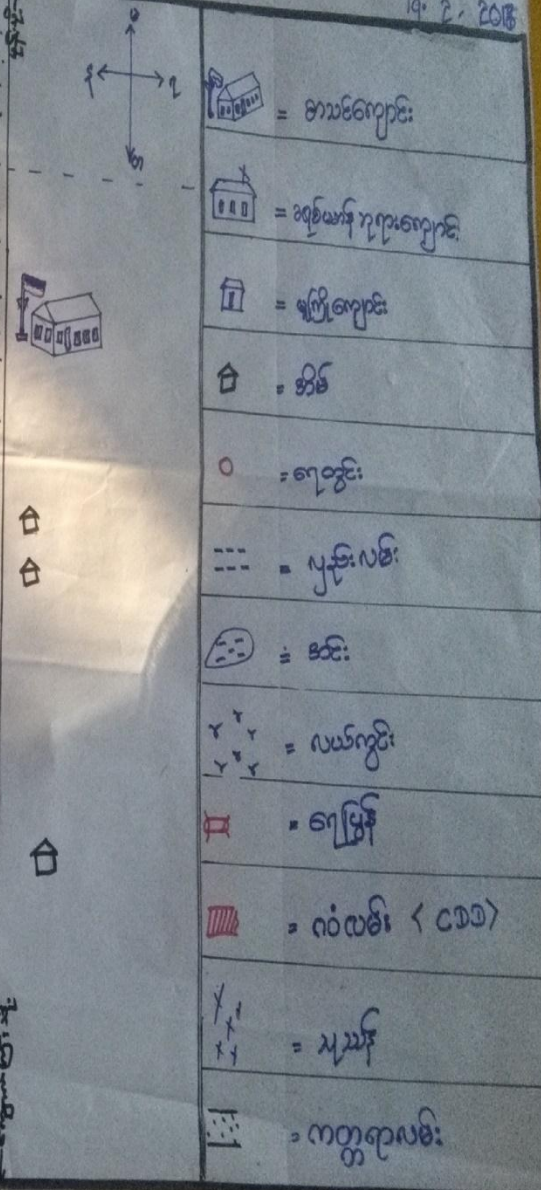 19. 2. 2018
= စာသင်ကျောင်း
= ခရစ်ယာန်ဘုရားကျောင်း
= မူကြိုကျောင်း
= အိမ်
= ရေတွင်း
= လှည်းလမ်း
= အင်း
= လယ်ကွင်း
= ရေပြွန်
= ဂဝံလမ်း < CDD >
= သုဿန်
= ကတ္တရာလမ်း